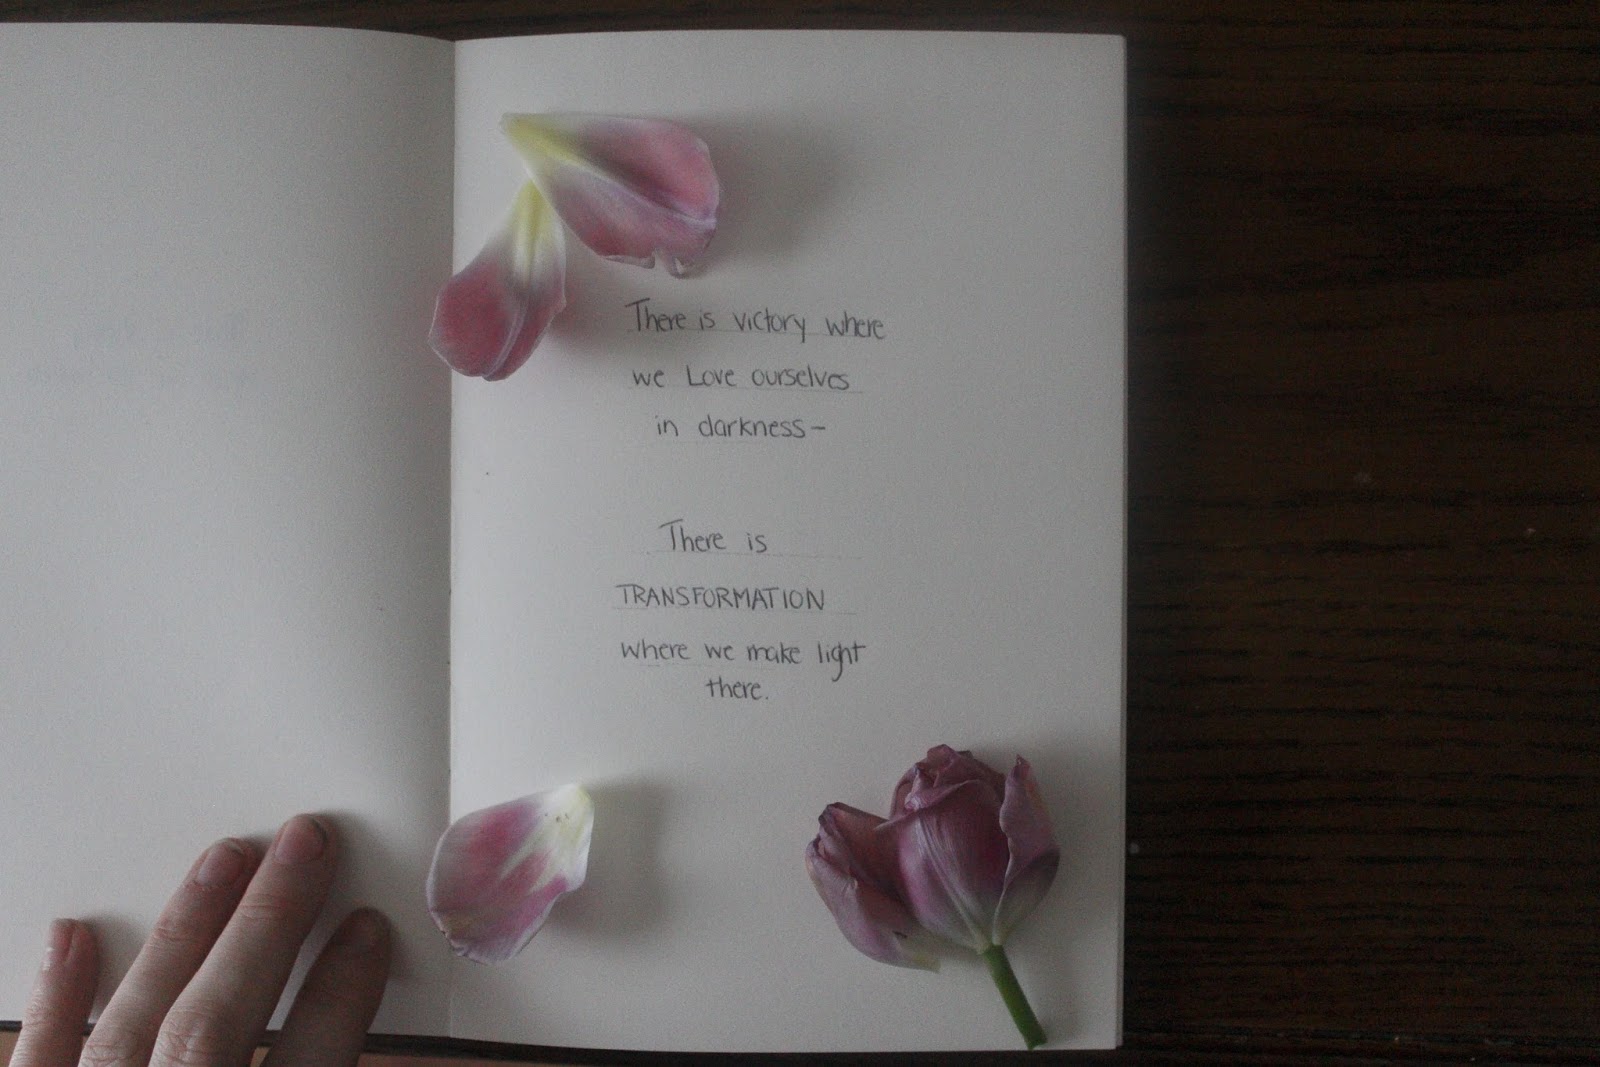 There is victory where
we Love ourselves
in darkness-
There is
TRANSFORMATION
where we make light
there.